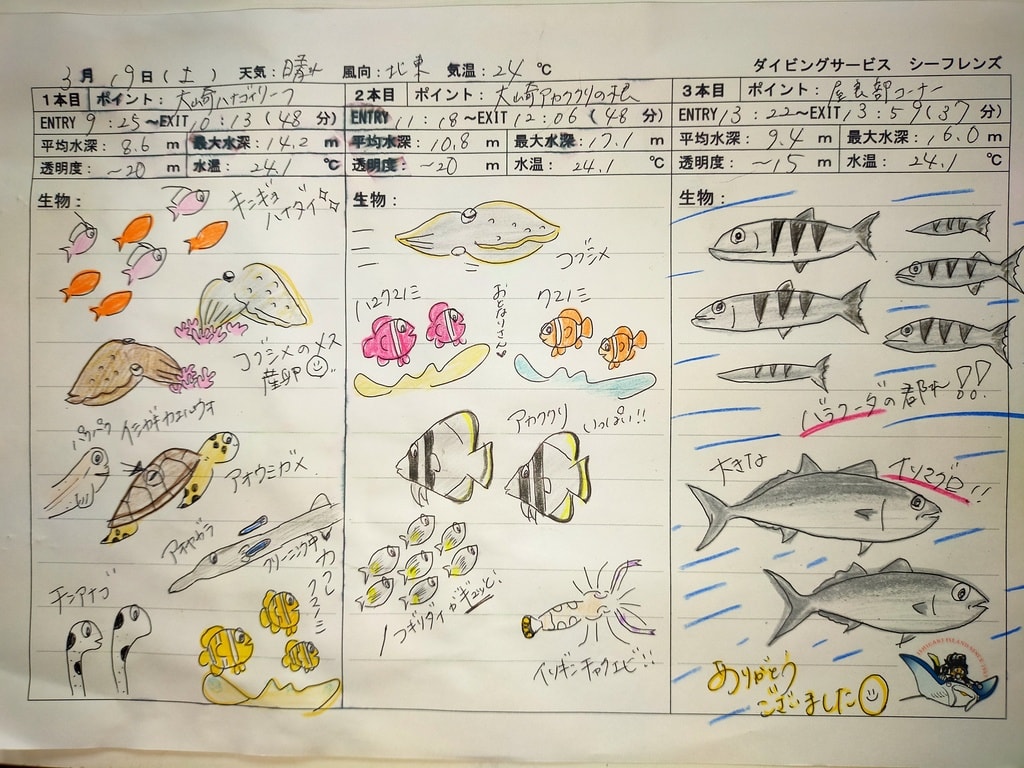 ダイビングサービス シーフレンズ
3月 19日(土) 天気:晴れ 風向:北東 気温:24℃
1本目 ポイント:大崎ハナゴイリーフ
ENTRY 9:25~EXIT 10:13(48分)
平均水深:8.6m 最大水深:14.2m
透明度:~20m 水温:24.1℃
生物:
キンギョ
ハナダイ☆☆
コブシメのメス
産卵
パクパク
イシガキカエルウオ
アオウミガメ
アオヤガラ
クリーニング中
チンアナゴ
カクレ
クマノミ
2本目 ポイント:大崎アカククリの根
ENTRY 11:18~EXIT 12:06(48分)
平均水深:10.8m 最大水深:17.1m
透明度:~20m 水温:24.1℃
生物:
コブシメ
ハマクマノミ
おとなりさん♡
クマノミ
アカククリ
いっぱい!!
ノコギリダイがギュッと!
イソギンチャクエビ!!
3本目 ポイント:屋良部コーナー
ENTRY 13:22~EXIT 13:59(37分)
平均水深:9.4m 最大水深:16.0m
透明度:~15m 水温:24.1℃
生物:
バラクーダの群れ!!
大きな
イソマグロ!!
ありがとう
ございました